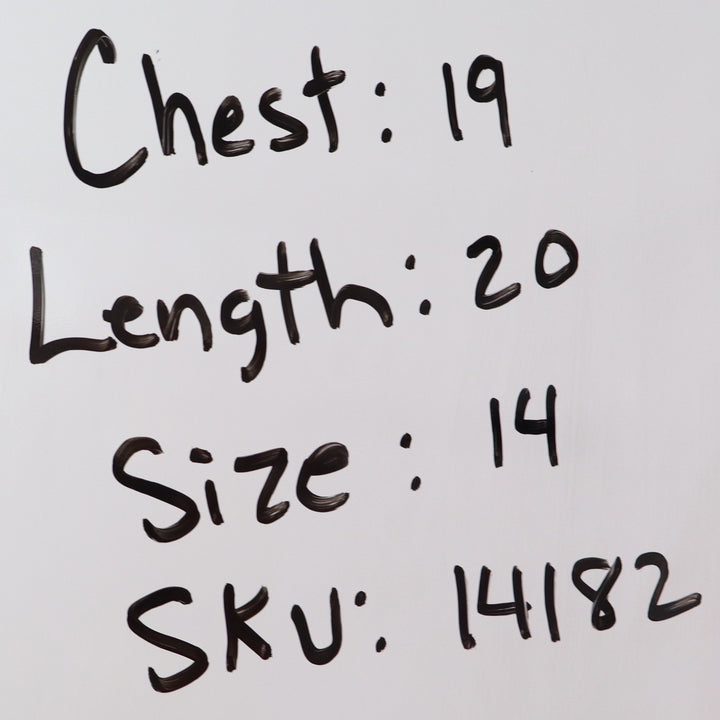 Chest: 19
Length: 20
Size: 14
SKU: 14182